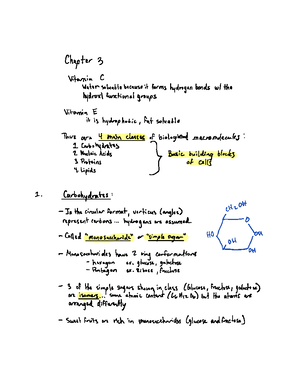 Chapter 3
Vitamin C
Water soluble because it forms hydrogen bonds w/ the
hydroxyl functional groups
Vitamin E
it is hydrophobic, fat soluble
There are 4 main classes of biological macromolecules:
1. Carbohydrates
2. Nucleic Acids
3. Proteins
4. Lipids
Basic building blocks
of cells
1. Carbohydrates:
- In the circular format, verticies (angles)
represent carbons ... hydrogens are assumed
- Called "monosaccharide" or "simple sugar"
- Monosaccharides have 2 ring conformations
- hexagon ex. glucose, galactose
- Pentagon ex. ribose, fructose
- 3 of the simple sugars shown in class (glucose, fructose, galactose)
are isomers... same atomic content (C6H12O6) but the atoms are
arranged differently
- Sweet fruits are rich in monosaccharides (glucose and fructose)
CH2OH
O
OH
OH
HO
OH